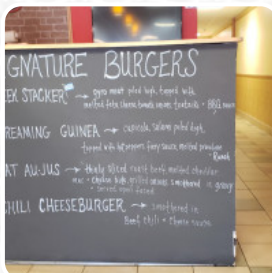 GNATURE BURGERS
EEK STACKER → gyro meat piled high, topped with
melted feta cheese, french onions, tzatziki + BBQ sauce
REAMING GUINEA → capicola, salami piled high,
topped with hot peppers, fiery sauce, melted provolone
+ Ranch
AT AU-JUS → thinly sliced roast beef, melted cheddar
mac + cheese, grilled onions, smothered in gravy
+ served open faced
CHILI CHEESEBURGER → smothered in
Beef Chili + Cheese sauce